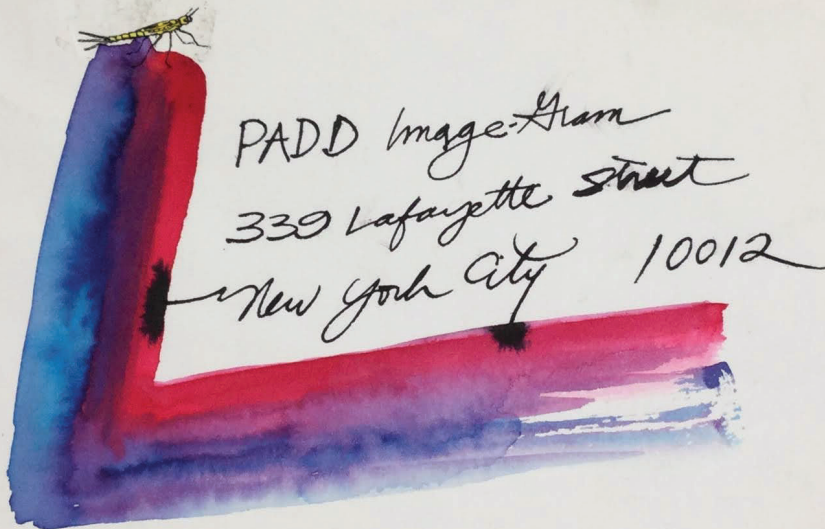 PADD Image-Gram
339 Lafayette Street
New York City 10012